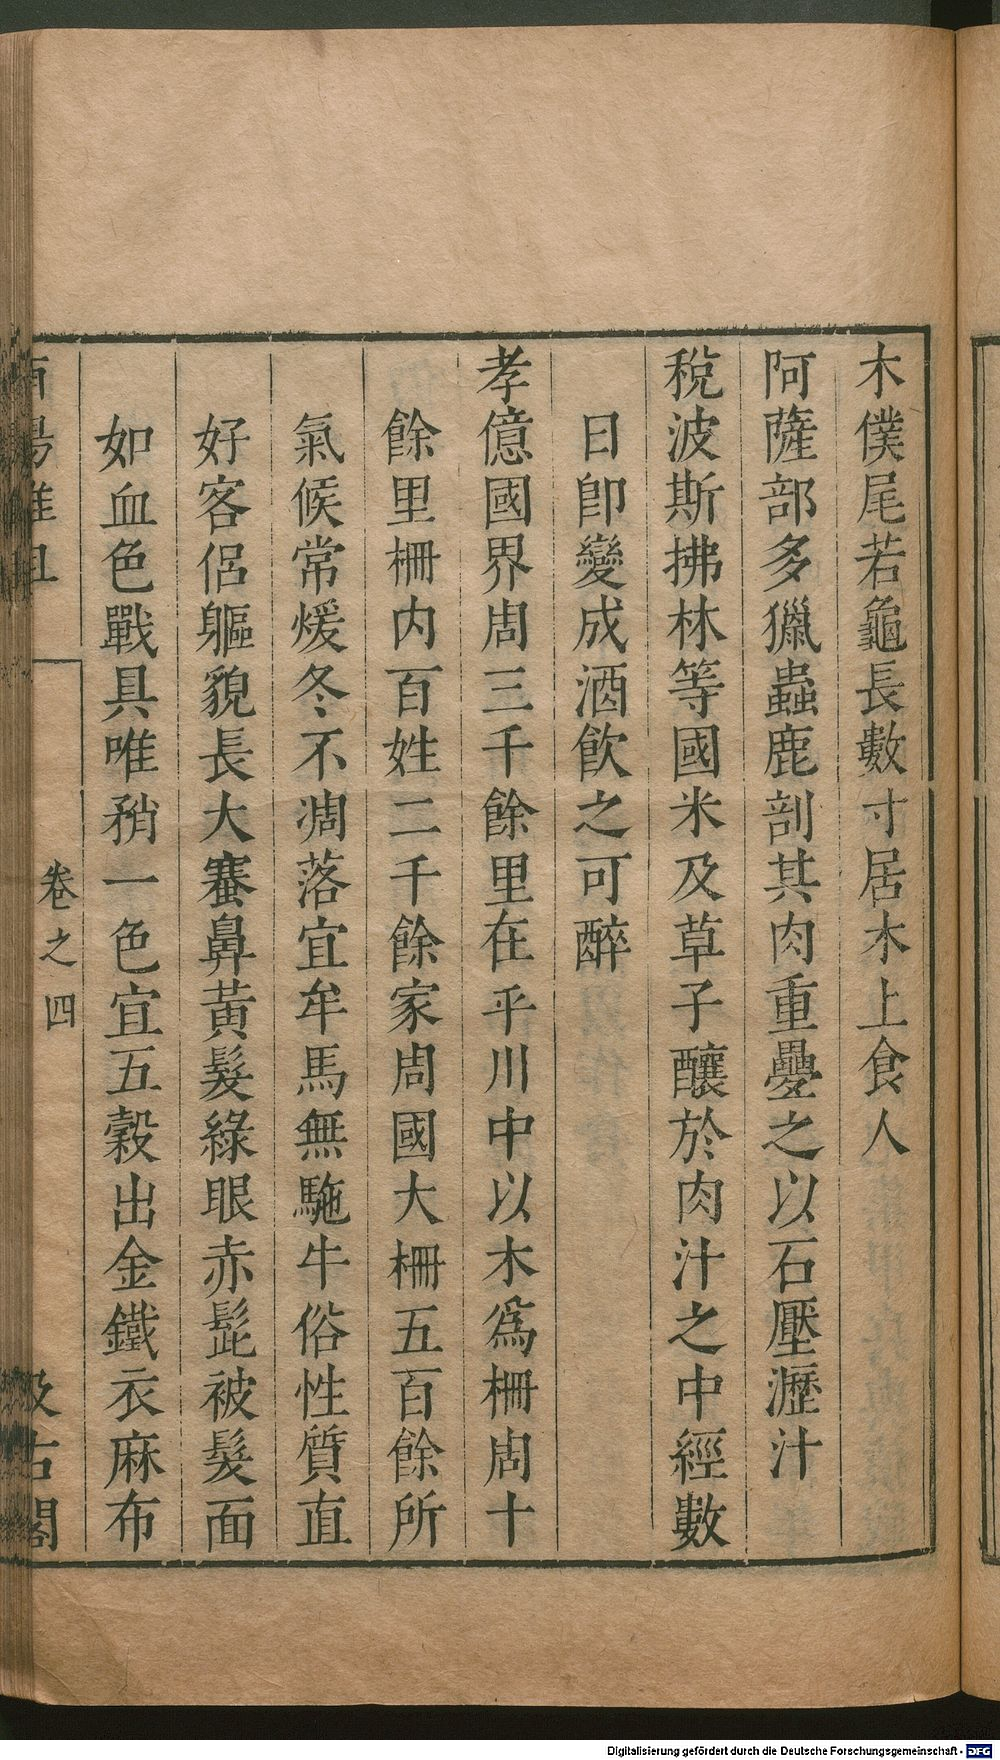 木僕尾若龜長數寸居木上食人
阿薩部多獵蟲鹿剖其肉重疊之以石壓瀝汁
稅波斯拂林等國米及草子釀於肉汁之中經數
日卽變成酒飮之可醉
孝億國界周三千餘里在平川中以木爲柵周十
餘里柵内百姓二千餘家周國大柵五百餘所
氣候常煖冬不凋落宜牟馬無駞牛俗性質直
好客侣軀貌長大褰鼻黃髮綠眼赤髭被髮面
如血色戰具唯矟一色宜五穀出金鐵衣麻布
酉陽雜俎
卷之四
汲古閣
Digitalisierung gefördert durch die Deutsche Forschungsgemeinschaft - DFG